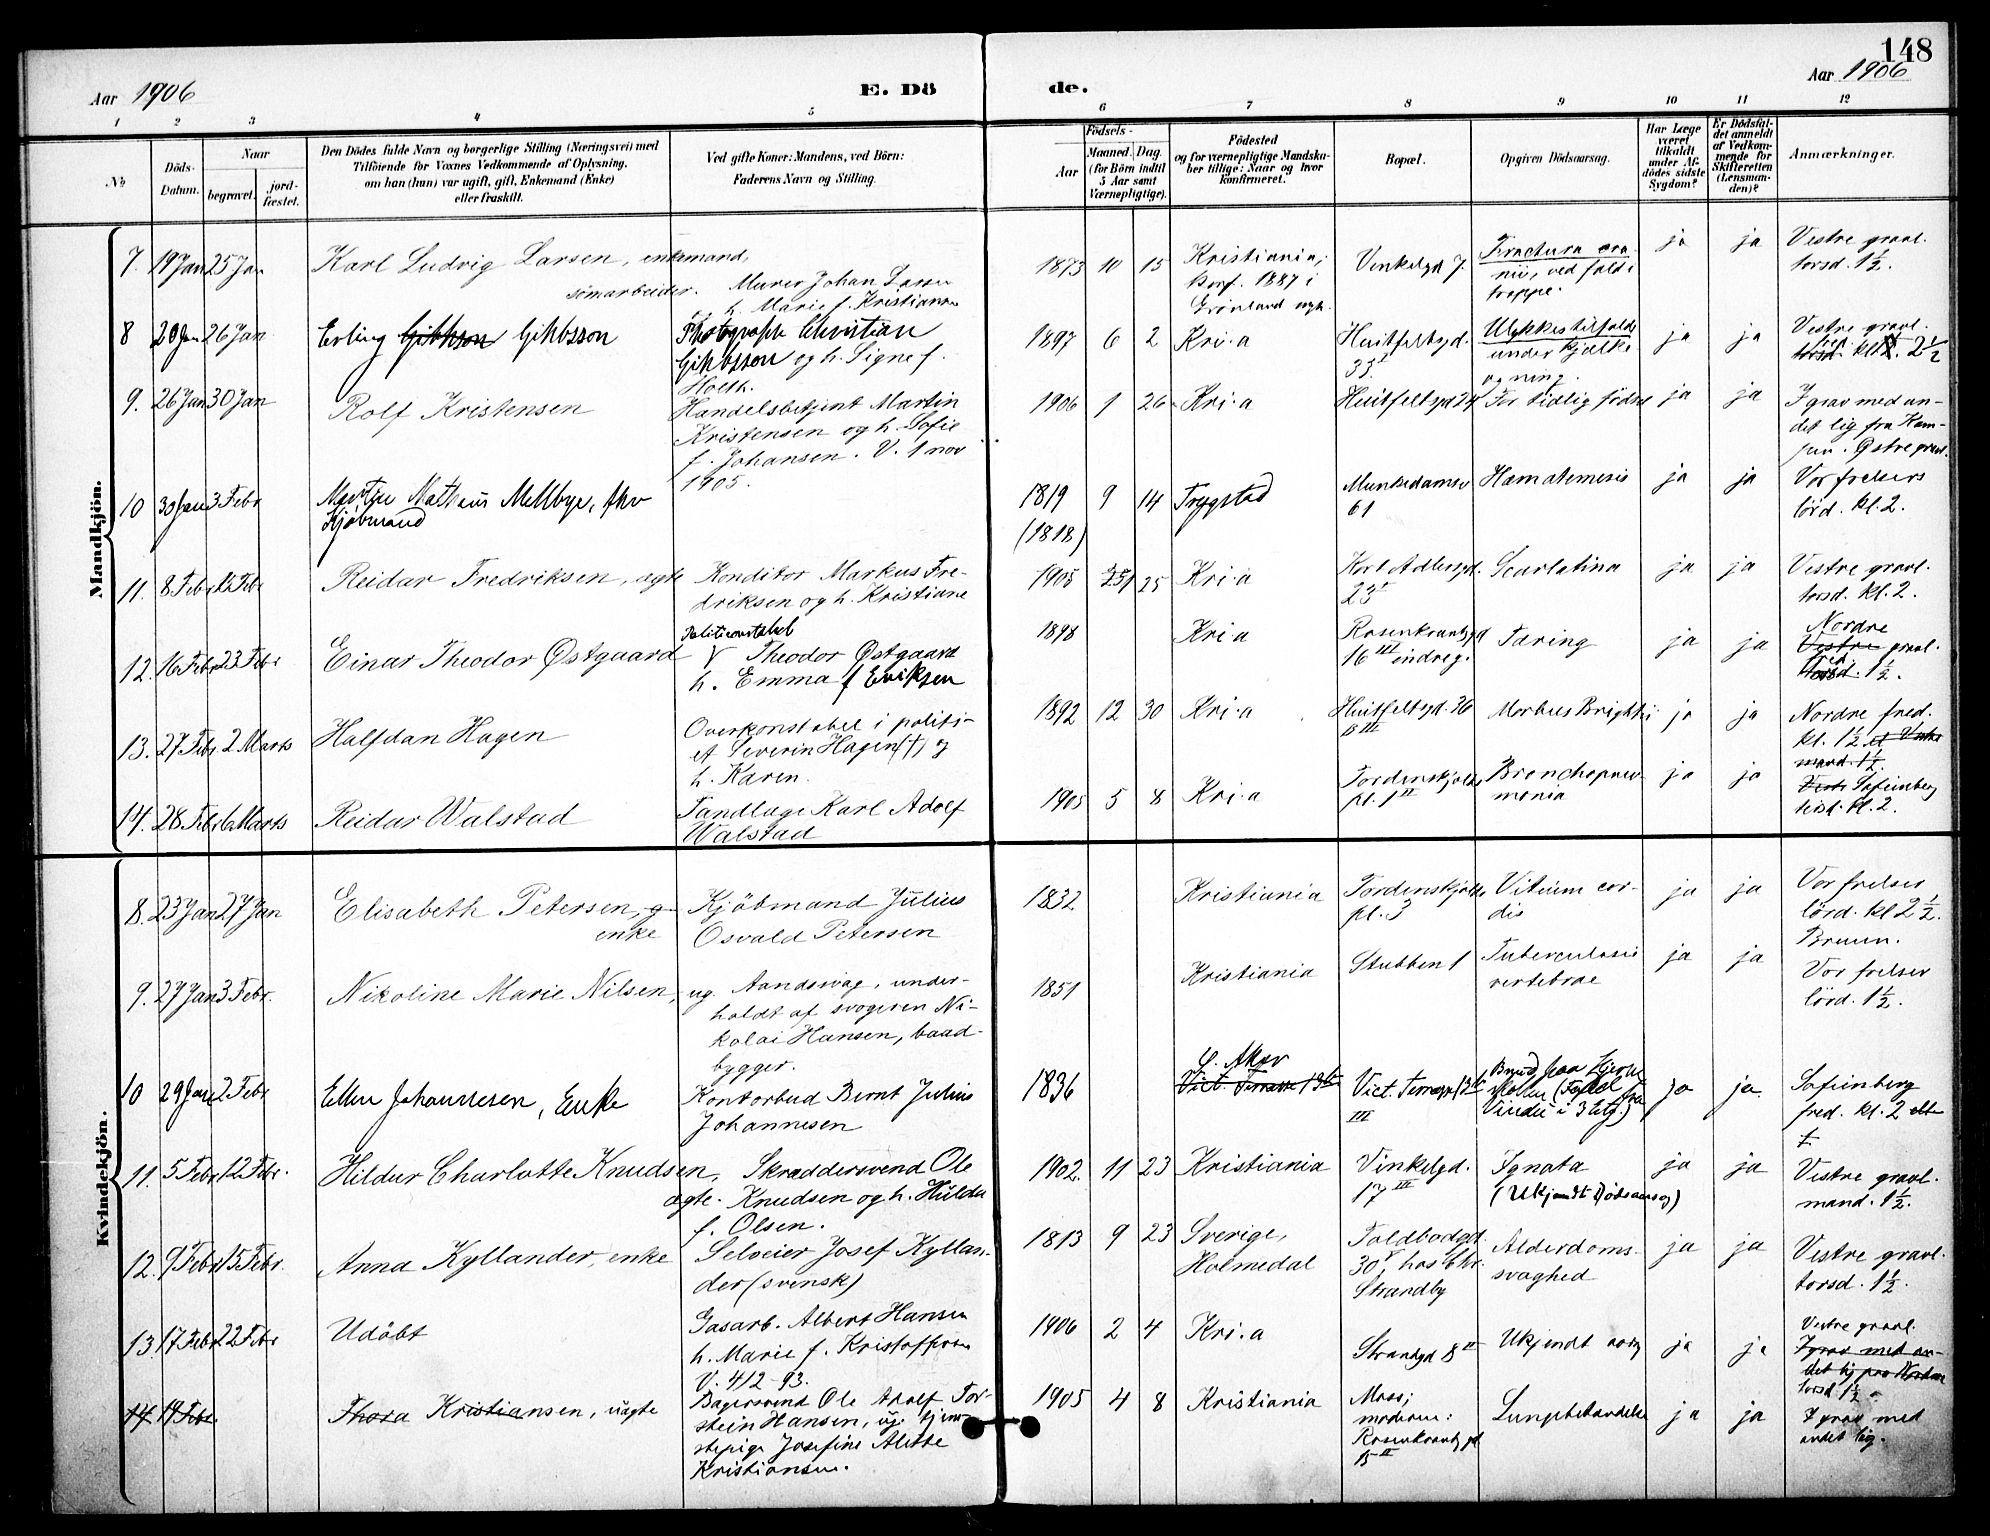 148
Aar 1906
E. Dö
de.
Aar 1906
1 2 3 4 5 6 7 8 9 10 11 12
No
Döds-Datum.
Naar
begravet.
jord-fæstet.
Den Dödes fulde Navn og borgerlige Stilling (Næringsvei) med
Tilföiende for Voxnes Vedkommende af Oplysning,
om han (hun) var ugift, gift, Enkemand (Enke)
eller fraskilt.
Ved gifte Koner: Mandens, ved Börn:
Faderens Navn og Stilling.
Födsels-
Aar
Maaned. Dag.
(for Börn indtil
5 Aar samt
Værnepligtige).
Födested
og for værnepligtige Mandska-
ber tillige: Naar og hvor
konfirmeret.
Bopæl.
Opgiven Dödsaarsag.
Har Læge
været
tilkaldt
under Af-
dödes sidste
Sygdom?
Er Dödsfal-
det anmeldt
af Vedkom-
mende for
Skifteretten
(Lensman-
den)?
Anmærkninger.
Mandkjön.
7. 19 Jan 25 Jan Karl Ludvig Larsen, enkemand,
simarbeider. Murer Johan Larsen
h. Marie f. Kristiansen
1873 10 15 Kristiania,
konf. 1887 i
Grønland
Vinkelgd 7.
Fractura cra-
nii, ved fald i
trappe.
ja ja Vestre gravl.
torsd. 1½.
8 20 Jan 26 Jan Erling Gihbsson Gihbsson
Photograph Christian
Gihbsson og h. Signe f.
Holth.
1897 6 2 Kri.a Huitfeltsgd.
33 I
Ulykkestilfælde
under kjælke
ning.
ja ja Vestre gravl.
torsd. kl. 2½
9. 26 Jan 30 Jan Rolf Kristensen
Handelsbetjent Martin
Kristensen og h. Sofie
f. Johansen. V. 1 nov
1905.
1906 1 26 Kri.a Huitfeltsgd 24 For tidlig födsel ja ja I grav med an-
det lig fra
Østre gravl.
10 30 Jan 3 Febr Mathæus Mellbye, fhv
Kjöbmand
1819 9 14 Trygstad
(1818)
Munkedamsv
61
Hæmatemesis ja ja Vor frelsers
lörd. kl. 2.
11. 8 Febr 15 Febr Reidar Fredriksen, ægte
Konditor Markus Fre-
driksen og h. Kristiane
1905 25 Kri.a Kort Adlersgd.
23 I
Scarlatina ja ja Vestre gravl.
torsd. kl. 2.
12. 16 Febr 23 Febr Einar Theodor Østgaard
Politikonstabel
Theodor Østgaard
h. Emma f Eriksen
1898 Kri a Rosenkrantzgd
16 III indreg.
Tæring ja ja Nordre
Vestre gravl.
fred.
torsd. 1½.
13. 27 Febr 2 Marts Halfdan Hagen
Overkonstabel i politi-
et Severin Hagen (†) og
h. Karen.
1892 12 30 Kri.a Huitfeltsgd. 36
B III
Morbus Brightii ja ja Nordre fred.
kl. 1½ Vestre
mand. 1½.
14. 28 Febr 6 Marts Reidar Walstad
Tandlæge Karl Adolf
Walstad
1905 5 8 Kri.a Tordenskjolds
pl. 1 II
Bronchopneu-
monia
ja ja Vestre Sofienberg
tirsd. kl. 2.
Kvindekjön.
8. 23 Jan 27 Jan Elisabeth Petersen,
enke
Kjöbmand Julius
Osvald Petersen
1832 Kristiania Tordenskjolds
pl. 3
Vitium cor-
dis
ja ja Vor frelser
lörd. kl 2½.
Bruun.
9. 27 Jan 3 Febr. Nikoline Marie Nilsen, ug.
Aandssvag, under-
holdt af svogeren Ni-
kolai Hansen, baad-
bygger.
1851 Kristiania Stubben 1 Tuberculosis
vertebrae
ja ja Vor frelser
lörd. 1½.
10 29 Jan 2 Febr Ellen Johannesen, Enke
Kontorbud Bernt Julius
Johannesen
1836 Aker
Vict. Terrasse 13 b
Vict. Terrasse 13 b
III
Brud paa Hjerne
skallen (Fald fra
Vindu i 3 Etg.)
ja ja. Sofienberg
fred. kl. 2
11. 5 Febr 12 Febr. Hildur Charlotte Knudsen,
ægte.
Skræddersvend Ole
Knudsen og h. Hulda
f. Olsen.
1902. 11 23 Kristiania Vinkelgd.
17 III
Ignota
(Ukjendt Dödsaarsag)
ja ja Vestre gravl.
mand. 1½.
12. 9 Febr 15 Febr. Anna Kyllander, enke
Selveier Josef Kyllan-
der (svensk)
1813 9 23 Sverige,
Holmedal
Toldbodgd.
30 V, hos
Strandby
Alderdoms-
svaghed
ja ja Vestre gravl.
torsd. 1½.
13. 17 Febr 22 Febr Udöbt
Gasarb. Albert Hansen
h. Marie f. Kristoffersen
V. 4/12-93.
1906 2 4 Kri.a Strandgd 8 II Ukjendt aarsag ja ja
Vestre gravl.
I grav med an-
det lig fra Nordre
torsd 1½.
14. 19 Febr. Thora Kristiansen, uægte
Bagersvend Ole Adolf Tor-
stein Hansen, ug. tjene
stepige Josefine Alette
Kristiansen.
1905 4 8 Kristiania Moss;
moderen:
Rosenkrantzgd
15 II
Lungebetændelse ja ja I grav med
andet lig.